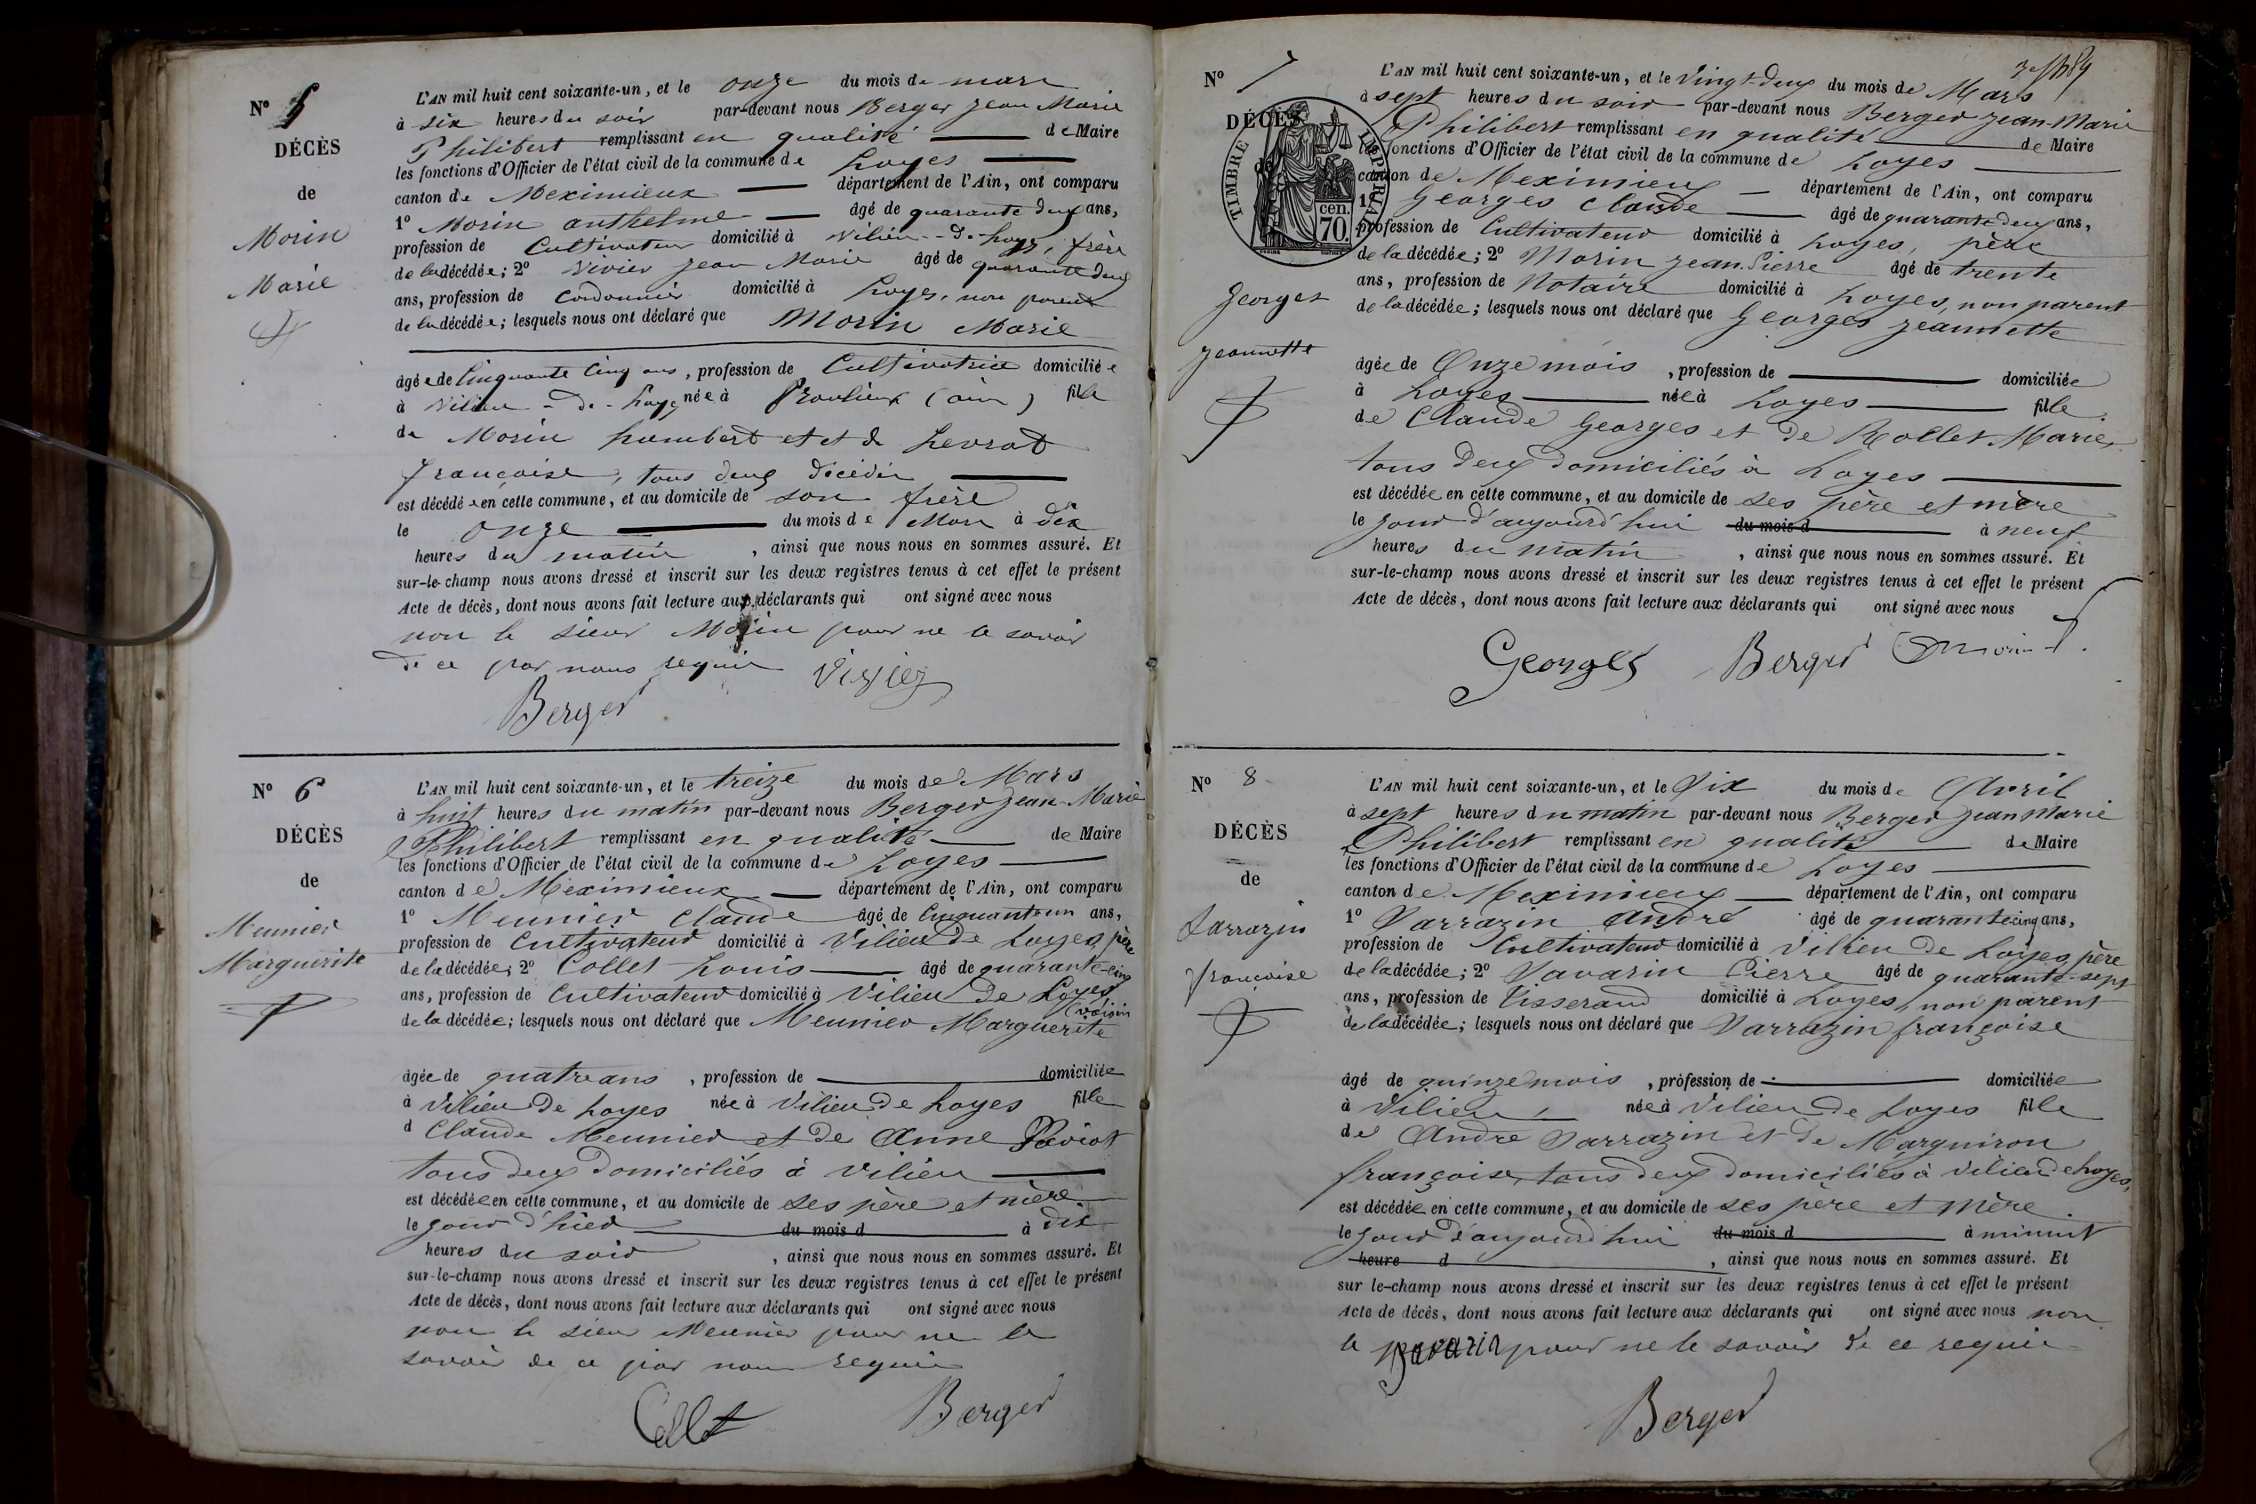 N° 5
DÉCÈS
de
Morin
Marie
L'AN mil huit cent soixante-un, et le onze du mois de mars
à six heures du soir par-devant nous Berger Jean Marie
Philibert remplissant en qualité de Maire
les fonctions d'Officier de l'état civil de la commune de Loyes
canton de Meximieux département de l'Ain, ont comparu
1° Morin anthelme âgé de quarante deux ans,
profession de Cultivateur domicilié à Vilieu-de-Loyes, frère
de la décédée; 2° Vivier Jean Marie âgé de quarante deux
ans, profession de Cordonnier domicilié à Loyes, non parent
de la décédée; lesquels nous ont déclaré que Morin Marie
âgée de Cinquante Cinq ans, profession de Cultivatrice domiciliée
à Vilieu-de-Loye née à Proulieux (ain) fille
de Morin humbert et et de Levrat
françoise, tous deux décédés
est décédée en cette commune, et au domicile de son frère
le onze du mois de Mars à dix
heures du matin, ainsi que nous nous en sommes assuré. Et
sur-le-champ nous avons dressé et inscrit sur les deux registres tenus à cet effet le présent
Acte de décès, dont nous avons fait lecture aux déclarants qui ont signé avec nous
non le sieur Morin pour ne le savoir
de ce par nous requis Vivier
Berger
N° 6
DÉCÈS
de
Meunier
Marguerite
L'AN mil huit cent soixante-un, et le treize du mois de Mars
à huit heures du matin par-devant nous Berger Jean-Marie
Philibert remplissant en qualité de Maire
les fonctions d'Officier de l'état civil de la commune de Loyes
canton de Meximieux département de l'Ain, ont comparu
1° Meunier Claude âgé de Cinquante un ans,
profession de Cultivateur domicilié à Vilieu de Loyes, père
de la décédée; 2° Collet Louis âgé de quarante-cinq
ans, profession de Cultivateur domicilié à Vilieu de Loyes
(voisin
de la décédée; lesquels nous ont déclaré que Meunier Marguerite
âgée de quatre ans, profession de domiciliée
à Vilieu de Loyes née à Vilieu de Loyes fille
d Claude Meunier et de Anne Paviot
tous deux domiciliés à Vilieu
est décédée en cette commune, et au domicile de ses père et mère
le jour d'hier du mois d à dix
heures du soir, ainsi que nous nous en sommes assuré. Et
sur-le-champ nous avons dressé et inscrit sur les deux registres tenus à cet effet le présent
Acte de décès, dont nous avons fait lecture aux déclarants qui ont signé avec nous
non le sieur Meunier pour ne le
savoir de ce par nous requis
Collet Berger
N° 7
DÉCÈS
de
TIMBRE IMPÉRIAL
70 cen.
Georges
Jeannette
L'AN mil huit cent soixante-un, et le Vingt-deux du mois de Mars
à sept heures du soir par-devant nous Berger Jean-Marie
Philibert remplissant en qualité de Maire
les fonctions d'Officier de l'état civil de la commune de Loyes
canton de Meximieux département de l'Ain, ont comparu
1° Georges Claude âgé de quarante deux ans,
profession de Cultivateur domicilié à Loyes, père
de la décédée; 2° Morin Jean-Pierre âgé de trente
ans, profession de Notaire domicilié à Loyes, non parent
de la décédée; lesquels nous ont déclaré que Georges Jeannette
âgée de Onze mois, profession de domiciliée
à Loyes née à Loyes fille
de Claude Georges et de Rollet Marie,
tous deux domiciliés à Loyes
est décédée en cette commune, et au domicile de ses père et mère
le jour d'aujourd'hui du mois d à neuf
heures du matin, ainsi que nous nous en sommes assuré. Et
sur-le-champ nous avons dressé et inscrit sur les deux registres tenus à cet effet le présent
Acte de décès, dont nous avons fait lecture aux déclarants qui ont signé avec nous
Georges Berger Morin
N° 8
DÉCÈS
de
Sarrazin
françoise
L'AN mil huit cent soixante-un, et le Dix du mois de Avril
à sept heures du matin par-devant nous Berger Jean Marie
Philibert remplissant en qualité de Maire
les fonctions d'Officier de l'état civil de la commune de Loyes
canton de Meximieux département de l'Ain, ont comparu
1° Sarrazin André âgé de quarante cinq ans,
profession de Cultivateur domicilié à Vilieu de Loyes, père
de la décédée; 2° Savarin Pierre âgé de quarante-sept
ans, profession de Tisserand domicilié à Loyes, non parent
de la décédée; lesquels nous ont déclaré que Sarrazin françoise
âgé de quinze mois, profession de domiciliée
à Vilieu, née à Vilieu de Loyes fille
de André Sarrazin et de Marguiron
françoise, tous deux domiciliés à Vilieu de Loyes,
est décédée en cette commune, et au domicile de ses père et mère
le jour d'aujourd'hui du mois d à minuit
heure d, ainsi que nous nous en sommes assuré. Et
sur le-champ nous avons dressé et inscrit sur les deux registres tenus à cet effet le présent
Acte de décès, dont nous avons fait lecture aux déclarants qui ont signé avec nous non
le Savarin pour ne le savoir de ce requis
Berger